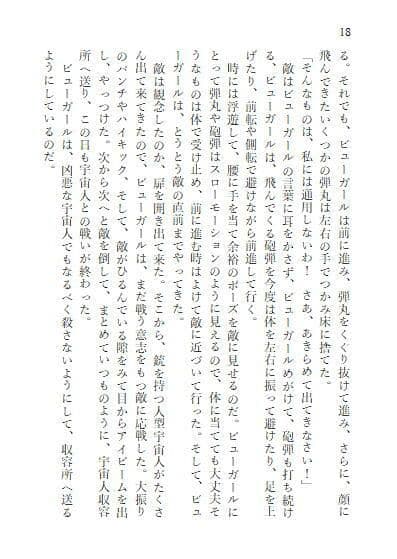 18
る。それでも、ビューガールは前に進み、弾丸をくぐり抜けて進み、さらに、顔に
飛んできたいくつかの弾丸は左右の手でつかみ床に捨てた。
「そんなものは、私には通用しないわ！　さあ、あきらめて出てきなさい！」
敵はビューガールの言葉に耳をかさず、ビューガールめがけて、砲弾も打ち続け
る、ビューガールは、飛んでくる砲弾を今度は体を左右に振って避けたり、足を上
げたり、前転や側転で避けながら前進して行く。
時には浮遊して、腰に手を当て余裕のポーズを敵に見せるのだ。ビューガールに
とって弾丸や砲弾はスローモーションのように見えるので、体に当てても大丈夫そ
うなものは体で受け止め、前に進む時はよけて敵に近づいて行った。そして、ビュ
ーガールは、とうとう敵の直前までやってきた。
敵は観念したのか、扉を開き出て来た。そこから、銃を持つ人型宇宙人がたくさ
ん出て来てきたので、ビューガールは、まだ戦う意志をもつ敵に応戦した。大振り
のパンチやハイキック、そして、敵がひるんでいる隙をみて目からアイビームを出
し、やっつけた。次から次へと敵を倒して、まとめていつものように、宇宙人収容
所へ送り、この日も宇宙人との戦いが終わった。
ビューガールは、凶悪な宇宙人でもなるべく殺さないようにして、収容所へ送る
ようにしているのだ。